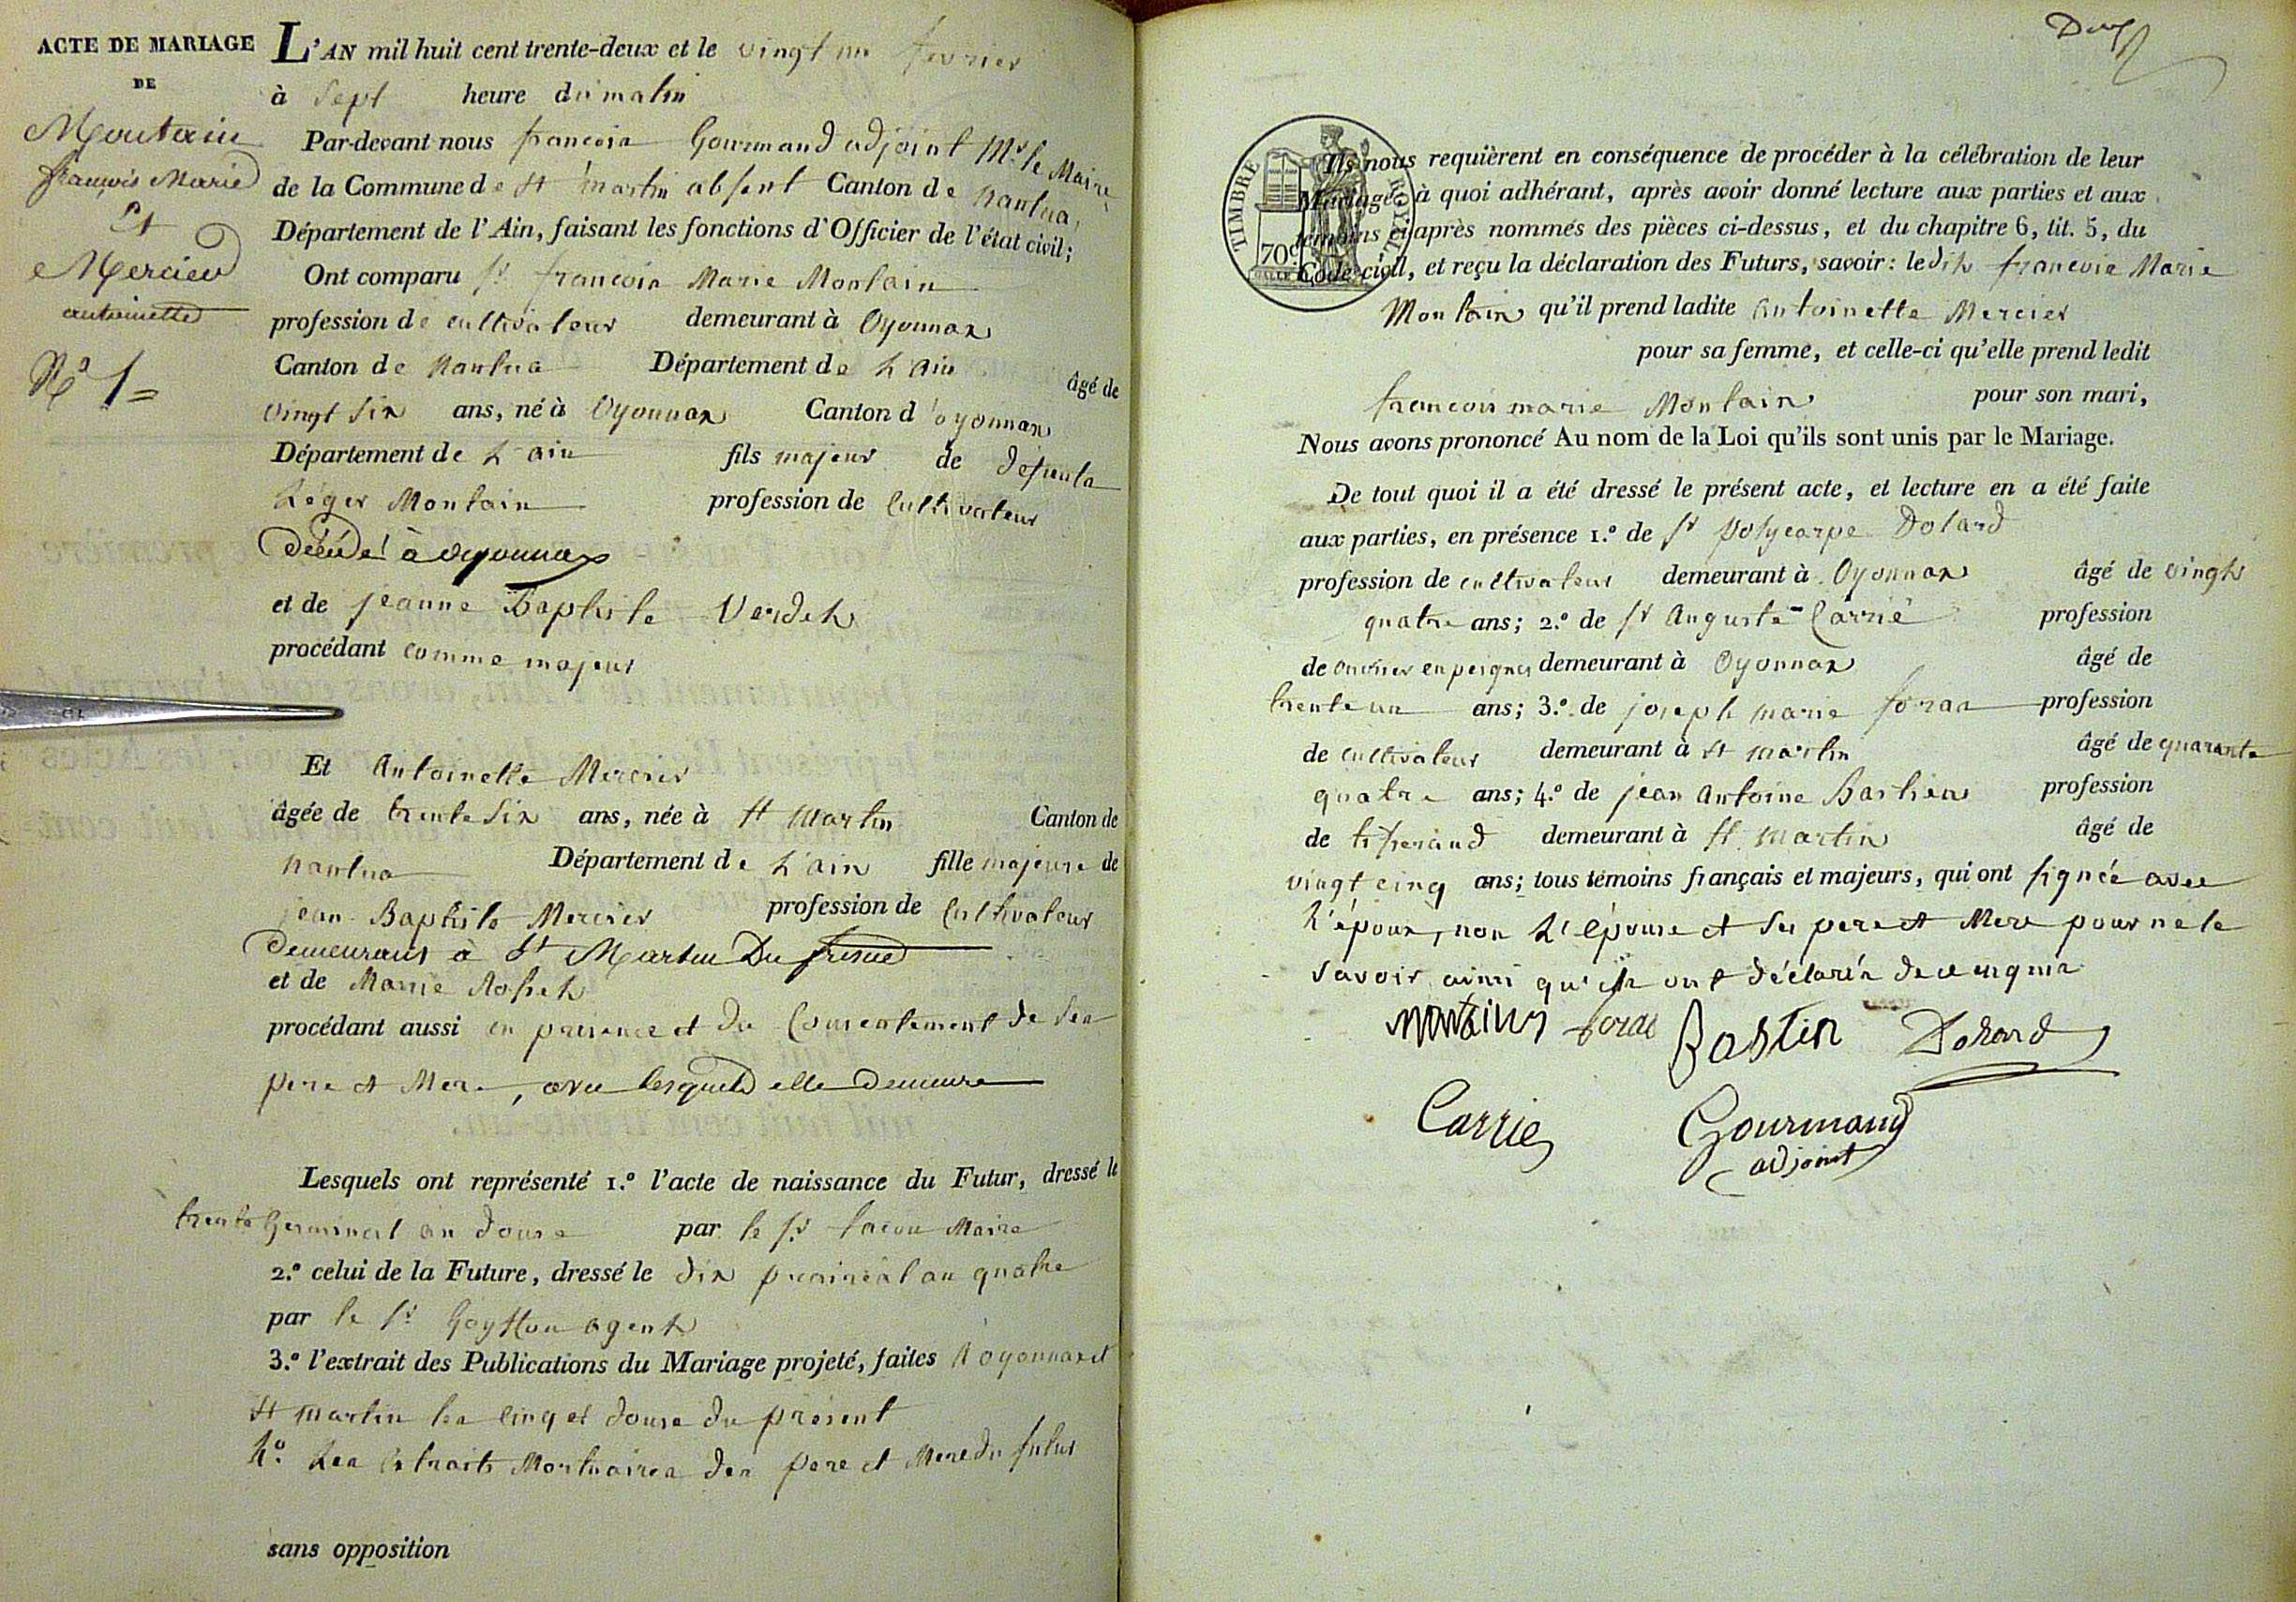 ACTE DE MARIAGE
DE
Moutain
françois Marie
Et
Mercier
antoinette
Nº 1=
L'AN mil huit cent trente-deux et le vingt un fevrier
à Sept heure du matin
Par-devant nous francois Gourmand adjoint Mr le Maire
de la Commune de St martin absent Canton de nantua,
Département de l'Ain, faisant les fonctions d'Officier de l'état civil;
Ont comparu Sr francois Marie Montain
profession de cultivateur demeurant à Oyonnax
Canton de nantua Département de L'ain âgé de
vingt six ans, né à Oyonnax Canton d'oyonnax
Département de L'ain fils majeur de defunta
Léger Montain profession de Cultivateur
Décédé à oyonnax
et de jeanne Baptiste Verdet
procédant comme majeur
Et Antoinette Mercier
âgée de trente six ans, née à St Martin Canton de
nantua Département de L'ain fille majeure de
jean Baptiste Mercier profession de Cultivateur
demeurant à St Martin Du fresne
et de Marrie
procédant aussi en présence et du Consentement de sea
pere et Mere, avec lesquels elle demeure
Lesquels ont représenté 1.º l'acte de naissance du Futur, dressé le
trente Germinal an douse par le Sr Maire
2.º celui de la Future, dressé le dix prairéal an quatre
par le Sr agent
3.º l'extrait des Publications du Mariage projeté, faites à oyonnax et
St Martin lea cinq et douse du présent
4º. Lea Extraits Mortuairea dea pere et Mere du futur
sans opposition
Deux
TIMBRE ROYAL
70c
Ils nous requièrent en conséquence de procéder à la célébration de leur
Mariage, à quoi adhérant, après avoir donné lecture aux parties et aux
témoins ci-après nommés des pièces ci-dessus, et du chapitre 6, tit. 5, du
Code civil, et reçu la déclaration des Futurs, savoir: ledit francoia Marie
Montain qu'il prend ladite antoinette Mercier
pour sa femme, et celle-ci qu'elle prend ledit
francois marie Montain pour son mari,
Nous avons prononcé Au nom de la Loi qu'ils sont unis par le Mariage.
De tout quoi il a été dressé le présent acte, et lecture en a été faite
aux parties, en présence 1.º de Sr polycarpe Dolard
profession de cultivateur demeurant à Oyonnax âgé de vingt
quatre ans; 2.º de Sr Auguste Carrié profession
de ouvrier en peignes demeurant à Oyonnax âgé de
trente un ans; 3.º de joseph marie foraa profession
de cultivateur demeurant à St martin âgé de quarante
quatre ans; 4.º de jean Antoine Bastien profession
de tisserand demeurant à St. martin âgé de
vingt cinq ans; tous témoins français et majeurs, qui ont signée avec
L'époux, non L'épouse et ses pere et Mere pour ne le
savoir ainsi qu'ils ont déclaréa de ce enquis
montain foras Bastin Dolard
Carrie Gourmand
adjoint